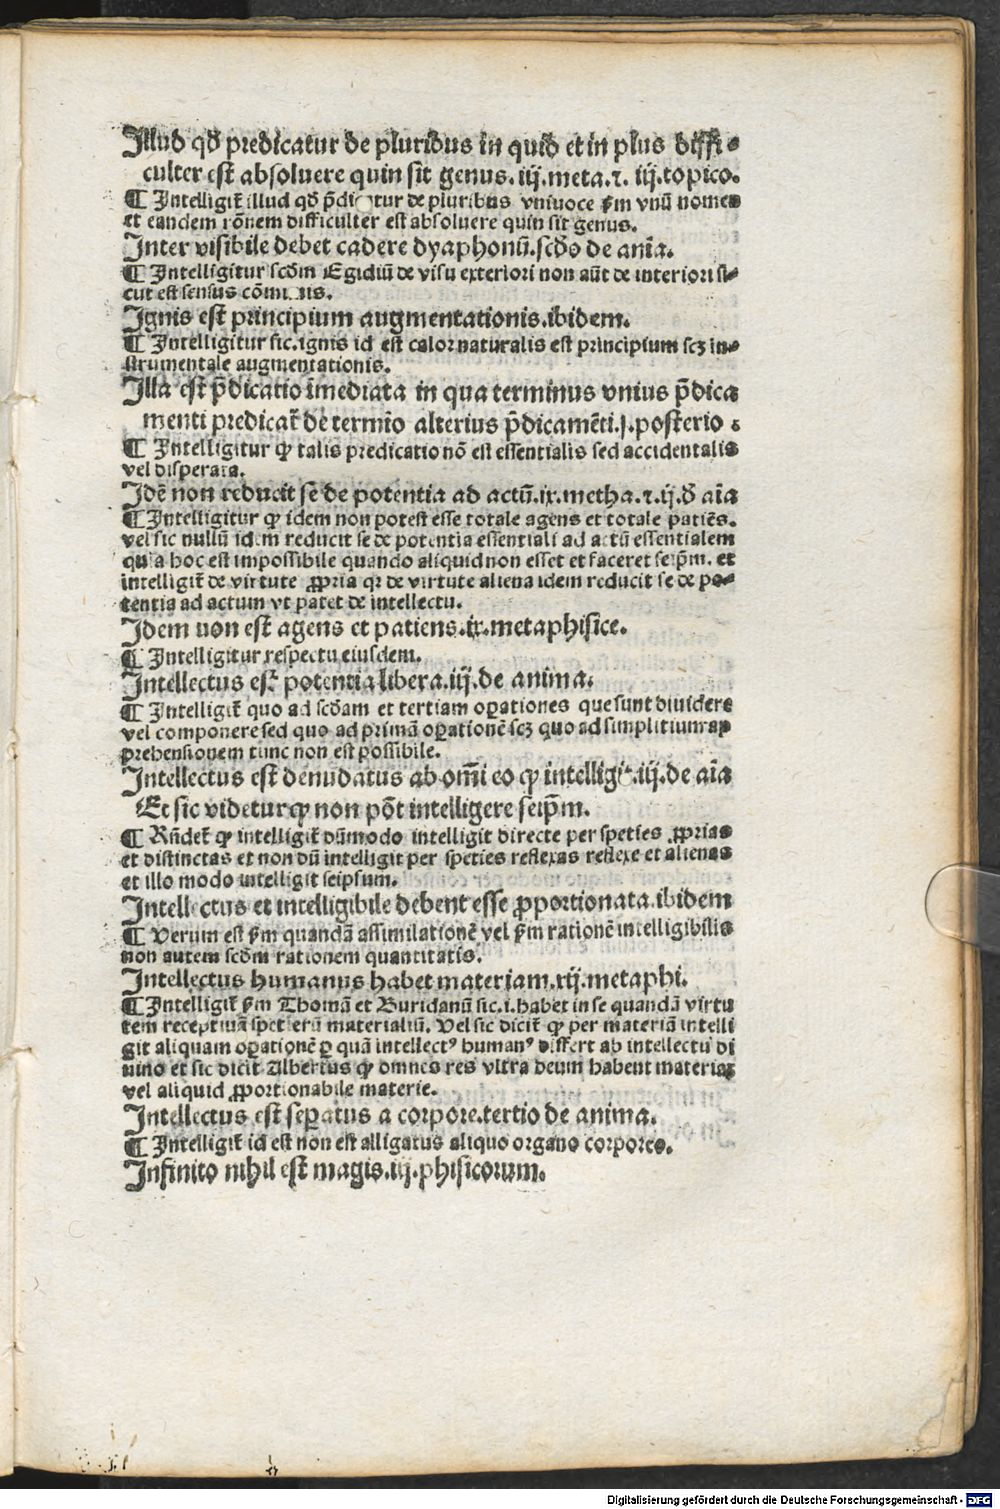 Illud qď predicatur de pluribus in quid et in plus diffi⸗
culter est absoluere quin sit genus. iij. meta. ⁊. iiij. topico.
¶ Intelligit̄ illud qď p̄dicatur de pluribus vniuoce ẜm vnū nomen
et eandem rōnem difficulter est absoluere quin sit genus.
Inter visibile debet cadere dyaphonū. scďo de anīa.
¶ Intelligitur scďm Egidiū de visu exteriori non aūt de interiori si⸗
cut est sensus cōmunis.
Ignis est principium augmentationis. ibidem.
¶ Intelligitur sic. ignis id est calor naturalis est principium scꝫ in⸗
strumentale augmentationis.
Illa est p̄dicatio īmediata in qua terminus vnius p̄dica
menti predicat̄ de termīo alterius p̄dicamēti. j. posterio
¶ Intelligitur ꝙ talis predicatio nō est essentialis sed accidentalis
vel disperata.
Idē non reducit se de potentia ad actū. ix. metha. ⁊. ij. ď aīa
¶ Intelligitur ꝙ idem non potest esse totale agens et totale patiēs.
vel sic nullū idem reducit se de potentia essentiali ad actū essentialem
quia hoc est impossibile quando aliquid non esset et faceret seip̄m. et
intelligit̄ de virtute ꝓpria qꝛ de virtute aliena idem reducit se de po⸗
tentia ad actum vt patet de intellectu.
Idem uon est agens et patiens. ix. metaphisice.
¶ Intelligitur respectu eiusdem.
Intellectus est potentia libera. iij. de anima.
¶ Intelligit̄ quo ad scďam et tertiam oꝑationes que sunt diuidere
vel componere sed quo ad primā oꝑationē scꝫ quo ad simplitium ap
prehensionem tunc non est possibile.
Intellectus est denudatus ab omī eo ꝙ intelligit. iij. de aīa
Et sic videtur ꝙ non pōt intelligere seip̄m.
¶ Rn̄det̄ ꝙ intelligit̄ dūmodo intelligit directe per speties ꝓprias
et distinctas et non dū intelligit per speties reflexas reflexe et alienas
et illo modo intelligit seipsum.
Intellectus et intelligibile debent esse ꝓportionata. ibidem
¶ Verum est ẜm quandā assimilationē vel ẜm rationē intelligibilis
non autem scďm rationem quantitatis.
Intellectus humanus habet materiam. xij. metaphi.
¶ Intelligit̄ ẜm Thomā et Buridanū sic. i. habet in se quandā virtu
tem receptiuā spetierū materialiū. Vel sic dicit̄ ꝙ per materiā intelli
git aliquam oꝑationē ꝑ quā intellectꝰ humanꝰ differt ab intellectu di
uino et sic dicit Albertus ꝙ omnes res vltra deum habent materiaz
vel aliquid ꝓportionabile materie.
Intellectus est seꝑatus a corpore. tertio de anima.
¶ Intelligit̄ id est non est alligatus aliquo organo corporeo.
Infinito nihil est magis. iij. phisicorum.
Digitalisierung gefördert durch die Deutsche Forschungsgemeinschaft - DFG